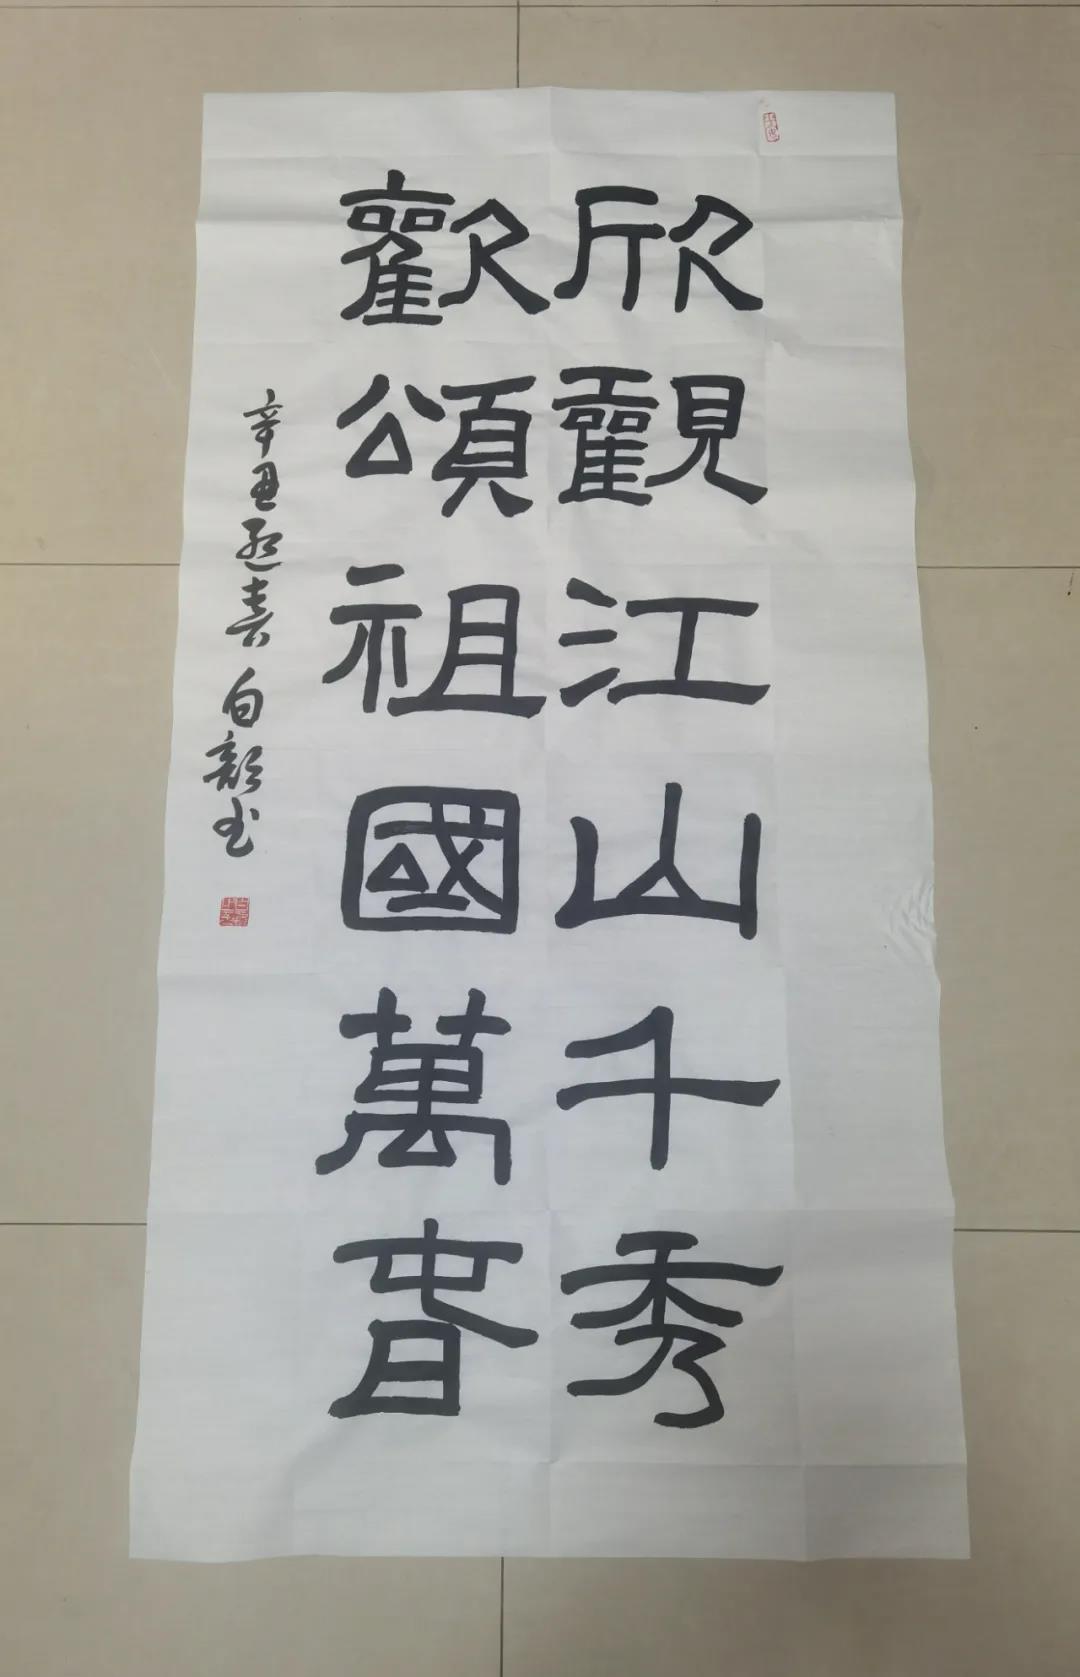 欣觀江山千秀
歡頌祖國萬春
辛丑孟春白韻书